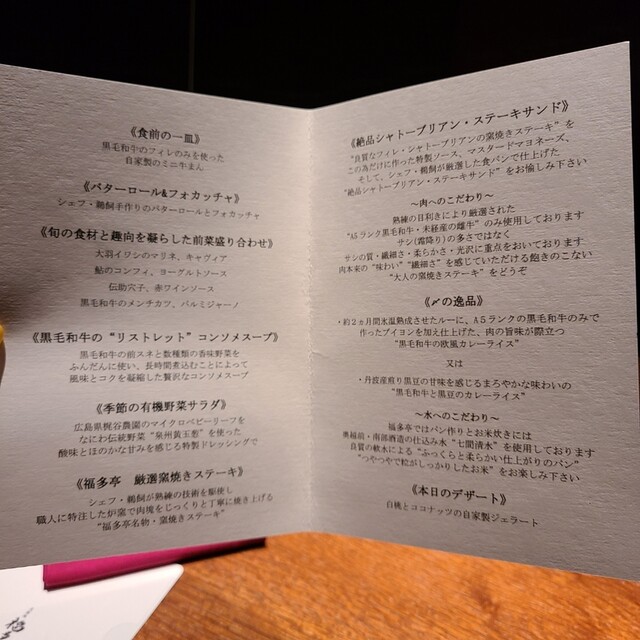 《食前の一皿》
黒毛和牛のフィレのみを使った
自家製のミニ牛まん
《バターロール&フォカッチャ》
シェフ・鵜飼手作りのバターロールとフォカッチャ
《旬の食材と趣向を凝らした前菜盛り合わせ》
大羽イワシのマリネ、キャヴィア
鮎のコンフィ、ヨーグルトソース
伝助穴子、赤ワインソース
黒毛和牛のメンチカツ、パルミジャーノ
《黒毛和牛の“リストレット” コンソメスープ》
黒毛和牛の前スネと数種類の香味野菜を
ふんだんに使い、長時間煮込むことによって
風味とコクを凝縮した贅沢なコンソメスープ
《季節の有機野菜サラダ》
広島県梶谷農園のマイクロベビーリーフを
なにわ伝統野菜 “泉州黄玉葱” を使った
酸味とほのかな甘みを感じる特製ドレッシングで
《福多亭 厳選窯焼きステーキ》
シェフ・鵜飼が熟練の技術を駆使し
職人に特注した炉窯で肉塊をじっくりと丁寧に焼き上げる
“福多亭名物・窯焼きステーキ”
《絶品シャトーブリアン・ステーキサンド》
“良質なフィレ・シャトーブリアンの窯焼きステーキ” を
この為だけに作った特製ソース、マスタードマヨネーズ、
そして、シェフ・鵜飼が厳選した食パンで仕上げた
“絶品シャトーブリアン・ステーキサンド” をお愉しみ下さい
～肉へのこだわり～
熟練の目利きにより厳選された
“A5ランク黒毛和牛・未経産の雌牛” のみ使用しております
サシ(霜降り)の多さではなく
サシの質・繊細さ・柔らかさ・光沢に重点をおいております
肉本来の “味わい” “繊細さ” を感じていただける飽きのこない
“大人の窯焼きステーキ” をどうぞ
《〆の逸品》
・約2ヵ月間氷温熟成させたルーに、A5ランクの黒毛和牛のみで
作ったブイヨンを加え仕上げた、肉の旨味が際立つ
“黒毛和牛の欧風カレーライス”
又は
・丹波産煎り黒豆の甘味を感じるまろやかな味わいの
“黒毛和牛と黒豆のカレーライス”
～水へのこだわり～
福多亭ではパン作りとお米炊きには
奥越前・南部酒造の仕込み水 “七間清水” を使用しております
良質の軟水による “ふっくらと柔らかい仕上がりのパン”
“つやつやで粒がしっかりしたお米” をお楽しみ下さい
《本日のデザート》
白桃とココナッツの自家製ジェラート